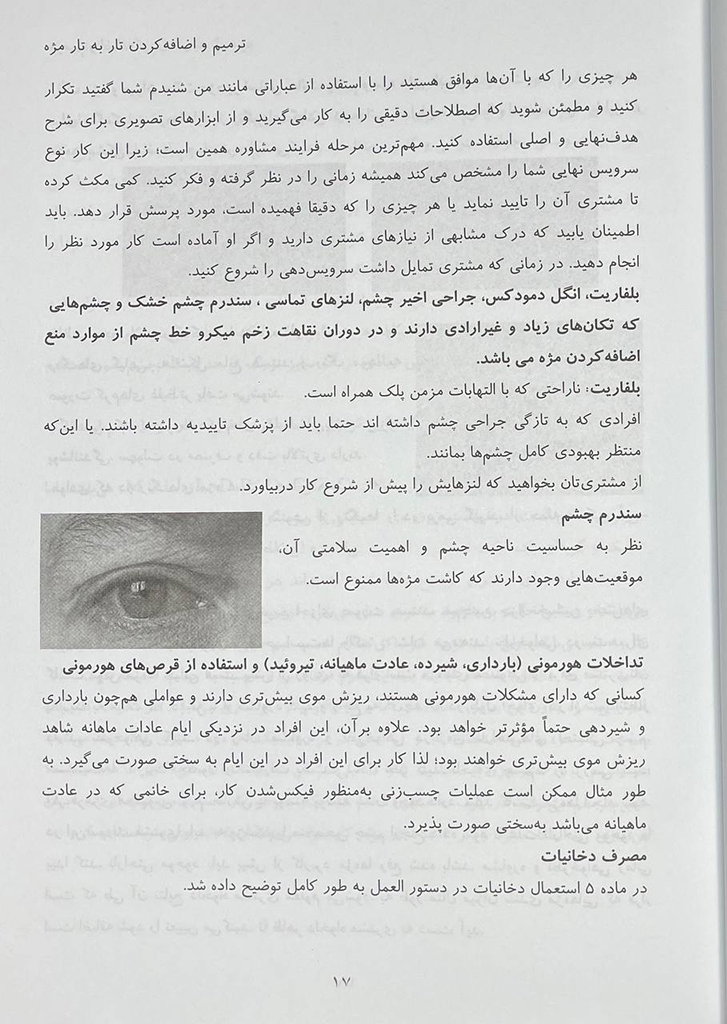 ترمیم و اضافه‌کردن تار به تار مژه
هر چیزی را که با آن‌ها موافق هستید را با استفاده از عباراتی مانند من شنیدم شما گفتید تکرار
کنید و مطمئن شوید که اصطلاحات دقیقی را به کار می‌گیرید و از ابزارهای تصویری برای شرح
هدف‌نهایی و اصلی استفاده کنید. مهم‌ترین مرحله فرایند مشاوره همین است؛ زیرا این کار نوع
سرویس نهایی شما را مشخص می‌کند همیشه زمانی را در نظر گرفته و فکر کنید. کمی مکث کرده
تا مشتری آن را تایید نماید یا هر چیزی را که دقیقا فهمیده است، مورد پرسش قرار دهد. باید
اطمینان یابید که درک مشابهی از نیازهای مشتری دارید و اگر او آماده است کار مورد نظر را
انجام دهید. در زمانی که مشتری تمایل داشت سرویس‌دهی را شروع کنید.
بلفاریت، انگل دمودکس، جراحی اخیر چشم، لنزهای تماسی ، سندرم چشم خشک و چشم‌هایی
که تکان‌های زیاد و غیرارادی دارند و در دوران نقاهت زخم میکرو خط چشم از موارد منع
اضافه‌کردن مژه می باشد.
بلفاریت: ناراحتی که با التهابات مزمن پلک همراه است.
افرادی که به تازگی جراحی چشم داشته اند حتما باید از پزشک تاییدیه داشته باشند. یا این‌که
منتظر بهبودی کامل چشم‌ها بمانند.
از مشتری‌تان بخواهید که لنزهایش را پیش از شروع کار دربیاورد.
سندرم چشم
نظر به حساسیت ناحیه چشم و اهمیت سلامتی آن،
موقعیت‌هایی وجود دارند که کاشت مژه‌ها ممنوع است.
تداخلات هورمونی (بارداری، شیرده، عادت ماهیانه، تیروئید) و استفاده از قرص‌های هورمونی
کسانی که دارای مشکلات هورمونی هستند، ریزش موی بیش‌تری دارند و عواملی هم‌چون بارداری
و شیردهی حتماً مؤثرتر خواهد بود. علاوه برآن، این افراد در نزدیکی ایام عادات ماهانه شاهد
ریزش موی بیش‌تری خواهند بود؛ لذا کار برای این افراد در این ایام به سختی صورت می‌گیرد. به
طور مثال ممکن است عملیات چسب‌زنی به‌منظور فیکس‌شدن کار، برای خانمی که در عادت
ماهیانه می‌باشد به‌سختی صورت پذیرد.
مصرف دخانیات
در ماده ۵ استعمال دخانیات در دستور العمل به طور کامل توضیح داده شد.
۱۷